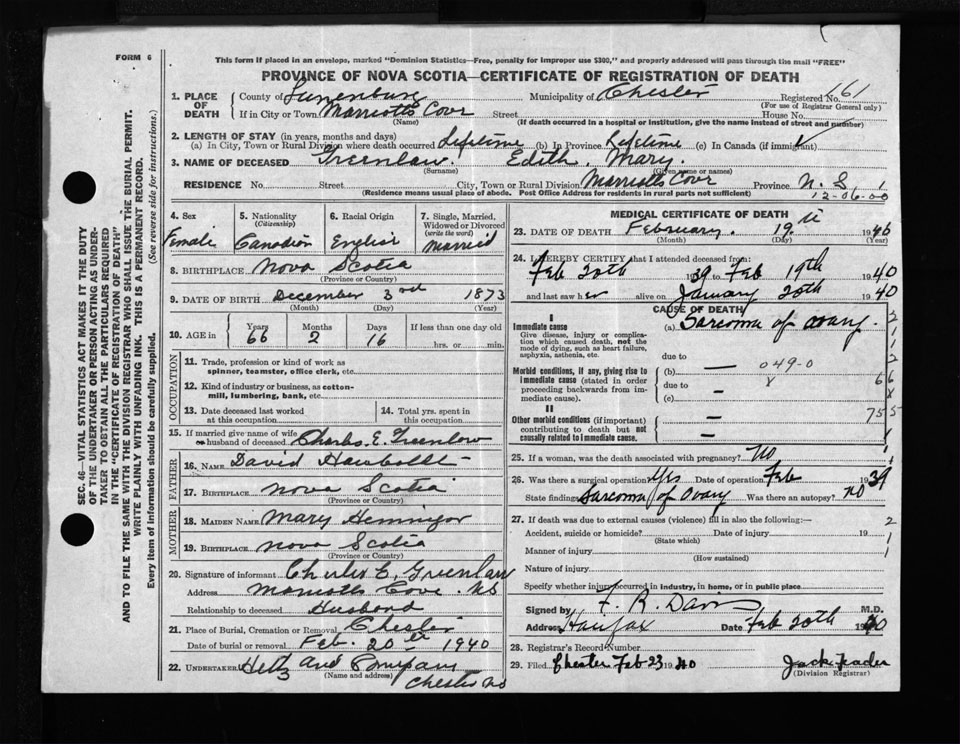 FORM 6
This form if placed in an envelope, marked "Dominion Statistics—Free, penalty for improper use $300," and properly addressed will pass through the mail "FREE"
PROVINCE OF NOVA SCOTIA—CERTIFICATE OF REGISTRATION OF DEATH
1. PLACE OF DEATH County of Lunenburg Municipality of Chester Registered No. 461
(For use of Registrar General only)
If in City or Town Marriotts Cove Street House No.
(Name) (If death occurred in a hospital or institution, give the name instead of street and number)
2. LENGTH OF STAY (in years, months and days)
(a) In City, Town or Rural Division where death occurred Lifetime (b) In Province Lifetime (c) In Canada (if immigrant)
3. NAME OF DECEASED Greenlaw, Edith Mary.
(Surname) (Given name or names)
RESIDENCE No. Street City, Town or Rural Division Marriotts Cove Province N.S. 1
(Residence means usual place of abode. Post Office Address for Residents in rural parts not sufficient) 12-06-00
4. Sex 5. Nationality (Citizenship) 6. Racial Origin 7. Single, Married, Widowed or Divorced (write the word)
Female Canadian English Married
8. BIRTHPLACE Nova Scotia
(Province or Country)
9. DATE OF BIRTH December 3rd 1873
(Month) (Day) (Year)
10. AGE in Years Months Days If less than one day old
66 2 16 hrs. or min.
OCCUPATION
11. Trade, profession or kind of work as spinner, teamster, office clerk, etc.
12. Kind of industry or business, as cotton-mill, lumbering, bank, etc.
13. Date deceased last worked at this occupation 14. Total yrs. spent in this occupation
15. If married give name of wife or husband of deceased Charles E. Greenlaw
FATHER
16. NAME David
17. BIRTHPLACE Nova Scotia
(Province or Country)
MOTHER
18. MAIDEN NAME Mary
19. BIRTHPLACE Nova Scotia
(Province or Country)
20. Signature of informant Charles E. Greenlaw
Address Marriotts Cove. NS
Relationship to deceased Husband
21. Place of Burial, Cremation or Removal Chester
Date of burial or removal Feb. 20th 1940
22. UNDERTAKER and Company
(Name and address) Chester NS
MEDICAL CERTIFICATE OF DEATH
23. DATE OF DEATH February. 19. 1940
(Month) (Day) (Year)
24. I HEREBY CERTIFY that I attended deceased from
Feb 20th 1939 to Feb 19th 1940
and last saw her alive on January 20th 1940
CAUSE OF DEATH
I
Immediate cause (a) Sarcoma of ovary.
Give disease, injury or complication which caused death, not the mode of dying, such as heart failure, asphyxia, asthenia, etc.
due to
Morbid conditions, if any, giving rise to immediate cause (stated in order proceeding backwards from immediate cause). (b) — 049-0
due to
(c) —
II
Other morbid conditions (if important) contributing to death but not causally related to immediate cause. —
755
25. If a woman, was the death associated with pregnancy? No
26. Was there a surgical operation? Yes Date of operation Feb 1939
State findings Sarcoma of Ovary Was there an autopsy? No
27. If death was due to external causes (violence) fill in also the following:—
Accident, suicide or homicide? Date of injury 19
(State which)
Manner of injury
(How sustained)
Nature of injury
Specify whether injury occurred in industry, in home, or in public place
Signed by F. R. Davis M.D.
Address Halifax Date Feb 20th 1940
28. Registrar's Record Number
29. Filed Chester Feb 23 1940
(Division Registrar)
SEC. 46—VITAL STATISTICS ACT MAKES IT THE DUTY
OF THE UNDERTAKER OR PERSON ACTING AS UNDER-
TAKER TO OBTAIN ALL THE PARTICULARS REQUIRED
IN THE "CERTIFICATE OF REGISTRATION OF DEATH"
AND TO FILE THE SAME WITH THE DIVISION REGISTRAR WHO SHALL ISSUE THE BURIAL PERMIT.
WRITE PLAINLY WITH UNFADING INK. THIS IS A PERMANENT RECORD.
Every item of information should be carefully supplied. (See reverse side for instructions.)